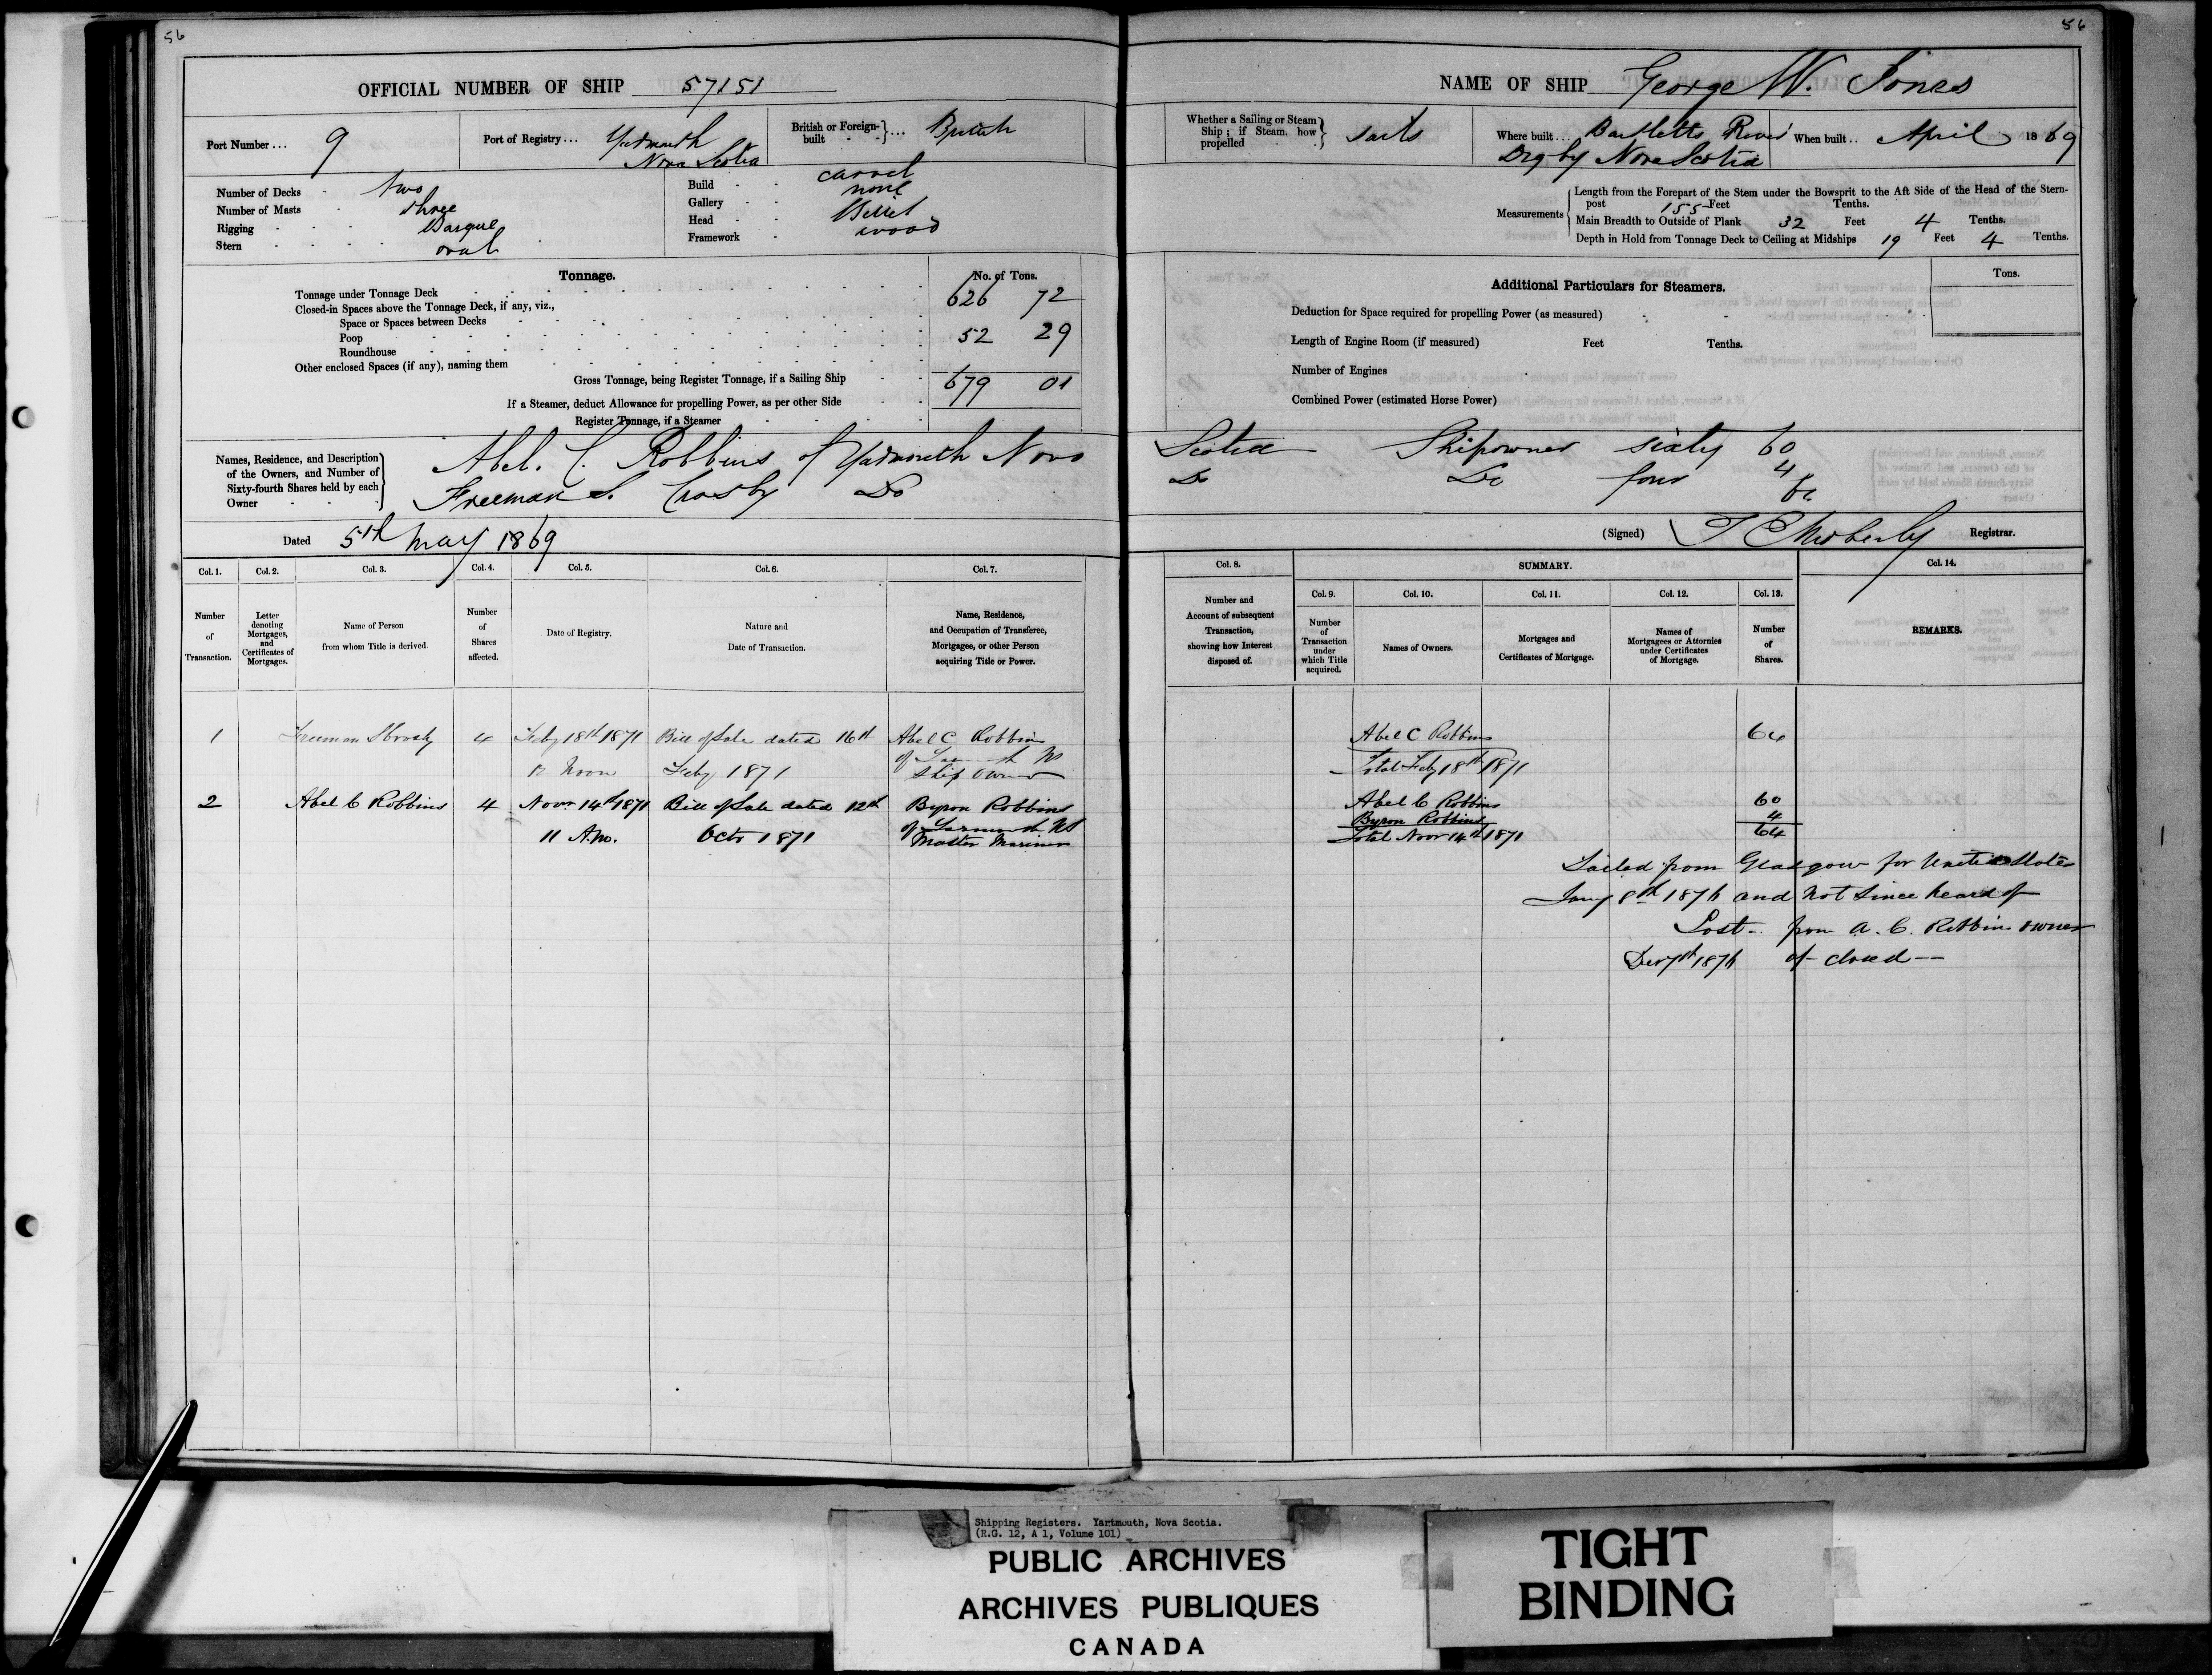 56
OFFICIAL NUMBER OF SHIP 57151
Port Number ... 9
Port of Registry ... Yarmouth
Nova Scotia
British or Foreign-built ... British
Number of Decks two
Number of Masts three
Rigging Barque
Stern oval
Build carvel
Gallery none
Head Billet
Framework wood
Tonnage.
No. of Tons.
Tonnage under Tonnage Deck 626 72
Closed-in Spaces above the Tonnage Deck, if any, viz.,
Space or Spaces between Decks
Poop 52 29
Roundhouse
Other enclosed Spaces (if any), naming them
Gross Tonnage, being Register Tonnage, if a Sailing Ship 679 01
If a Steamer, deduct Allowance for propelling Power, as per other Side
Register Tonnage, if a Steamer
56
NAME OF SHIP George W. Jones
Whether a Sailing or Steam Ship; if Steam, how propelled Sails
Where built ... Bartletts River
Digby Nova Scotia
When built .. April 1869
Measurements
Length from the Forepart of the Stem under the Bowsprit to the Aft Side of the Head of the Stern-
post 155 Feet Tenths.
Main Breadth to Outside of Plank 32 Feet 4 Tenths.
Depth in Hold from Tonnage Deck to Ceiling at Midships 19 Feet 4 Tenths.
Additional Particulars for Steamers.
Tons.
Deduction for Space required for propelling Power (as measured)
Length of Engine Room (if measured) Feet Tenths.
Number of Engines
Combined Power (estimated Horse Power)
Names, Residence, and Description
of the Owners, and Number of
Sixty-fourth Shares held by each
Owner
Abel. C. Robbins of Yarmouth Nova Scotia Shipowner sixty 60
Freeman S. Crosby Do Do Do four 4
64
Dated 5th May 1869
(Signed) Registrar.
Col. 1.
Number
of
Transaction.
Col. 2.
Letter
denoting
Mortgages,
and
Certificates of
Mortgages.
Col. 3.
Name of Person
from whom Title is derived.
Col. 4.
Number
of
Shares
affected.
Col. 5.
Date of Registry.
Col. 6.
Nature and
Date of Transaction.
Col. 7.
Name, Residence,
and Occupation of Transferee,
Mortgagee, or other Person
acquiring Title or Power.
Col. 8.
Number and
Account of subsequent
Transaction,
showing how Interest
disposed of.
SUMMARY.
Col. 9.
Number
of
Transaction
under
which Title
acquired.
Col. 10.
Names of Owners.
Col. 11.
Mortgages and
Certificates of Mortgage.
Col. 12.
Names of
Mortgagees or Attornies
under Certificates
of Mortgage.
Col. 13.
Number
of
Shares.
Col. 14.
REMARKS.
1 Freeman S Crosby 4 Feby 18th 1871 Bill of Sale dated 16th Abel C Robbins
12 Noon Feby 1871 of Yarmouth NS
Ship Owner
2 Abel C Robbins 4 Novr 14th 1871 Bill of Sale dated 12th Byron Robbins
11 A.m. Octr 1871 of Yarmouth NS
Master Mariner
Abel C Robbins 64
Total Feby 18th 1871
Abel C Robbins 60
Byron Robbins 4
Total Novr 14th 1871 64
Sailed from Glasgow for United States
Jany 8th 1876 and not since heard of
Lost - from A. C. Robbins owner
1876 closed
Shipping Registers. Yartmouth, Nova Scotia.
(R.G. 12, A 1, Volume 101)
PUBLIC ARCHIVES
ARCHIVES PUBLIQUES
CANADA
TIGHT
BINDING